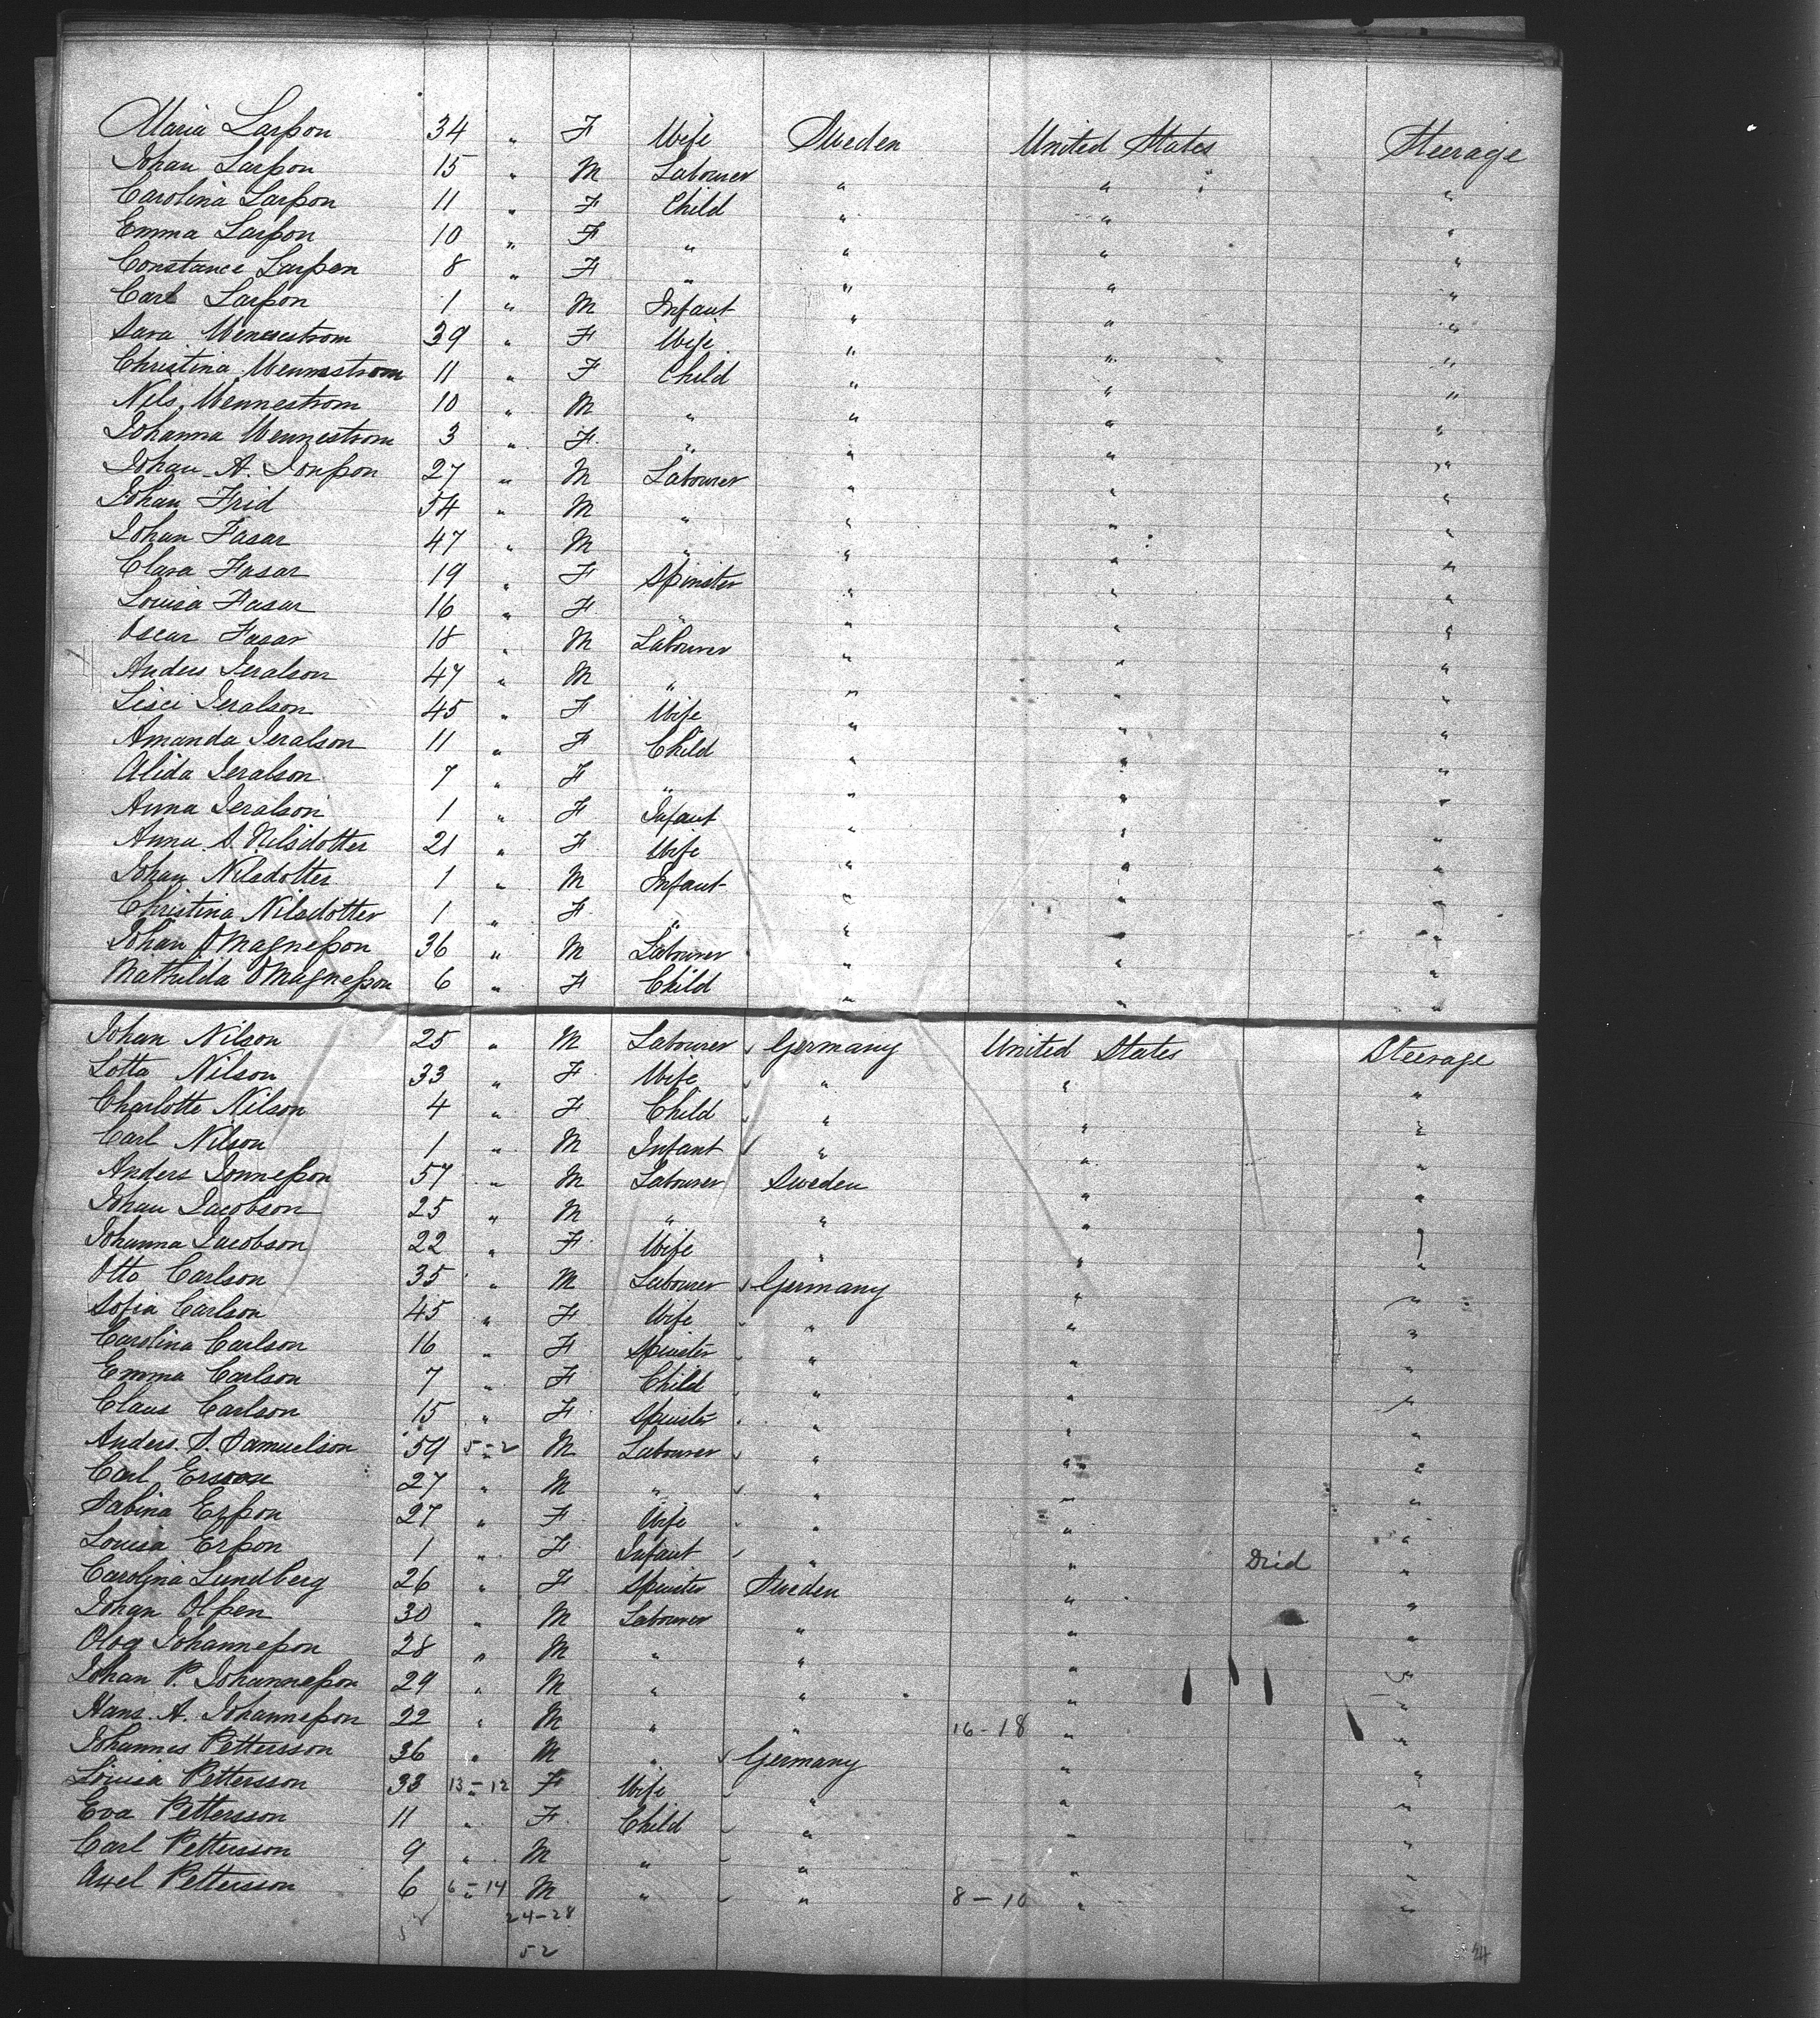 Maria Larsson 34 " F Wife Sweden United States Steerage
Johan Larsson 15 " M Labourer " " "
Carolina Larsson 11 " F Child " " "
Emma Larsson 10 " F " " " "
Constance Larssen 8 " F " " " "
Carl Larsson 1 " M Infant " " "
Sara Wennestrom 39 " F Wife " " "
Christina Wennestrom 11 " F Child " " "
Nils Wennestrom 10 " M " " " "
Johanna Wennestrom 3 " F " " " "
Johan A. Jonsson 27 " M Labourer " " "
Johan Frid 54 " M " " " "
Johan Fasar 47 " M " " " "
Clara Fasar 19 " F Spinster " " "
Louisa Fasar 16 " F " " " "
Oscar Fasar 18 " M Labourer " " "
Anders Jeralson 47 " M " " " "
Jeralson 45 " F Wife " " "
Amanda Jeralson 11 " F Child " " "
Alida Jeralson 7 " F " " " "
Anna Jeralson 1 " F Infant " " "
Anna S. Nilsdotter 21 " F Wife " " "
Johan Nilsdotter 1 " M Infant " " "
Christina Nilsdotter 1 " F " " " "
Johan O Magnesson 36 " M Labourer " " "
Mathilda O Magnesson 6 " F Child " " "
Johan Nilson 25 " M Labourer Germany United States Steerage
Lotta Nilson 33 " F Wife " " "
Charlotte Nilson 4 " F Child " " "
Carl Nilson 1 " M Infant " " "
Anders Jonnesson 57 " M Labourer Sweden " "
Johan Jacobson 25 " M " " " "
Johanna Jacobson 22 " F Wife " " "
Otto Carlson 35 " M Labourer Germany " "
Sofia Carlson 45 " F Wife " " "
Carolina Carlson 16 " F Spinster " " "
Emma Carlson 7 " F Child " " "
Claus Carlson 15 " F Spinster " " "
Anders S. Samuelson 59 5-2 " M Labourer " " "
Carl Ersson 27 " M " " " "
Sabina Ersson 27 " F Wife " " "
Louisa Ersson 1 " F Infant " " Died "
Carolina Lundberg 26 " F Spinster Sweden " "
Johan Olssen 30 " M Labourer " " "
Olog Johannesson 28 " M " " " "
Johan P. Johannesson 29 " M " " " "
Hans. A. Johannesson 22 " M " " 16-18 " "
Johannes Pettersson 36 " M " Germany " "
Louisa Pettersson 33 13-12 " F Wife " " "
Eva Pettersson 11 " F Child " " "
Carl Pettersson 9 " M " " " "
Axel Pettersson 6 6-14 " M " " 8-10 " "
24-28
52